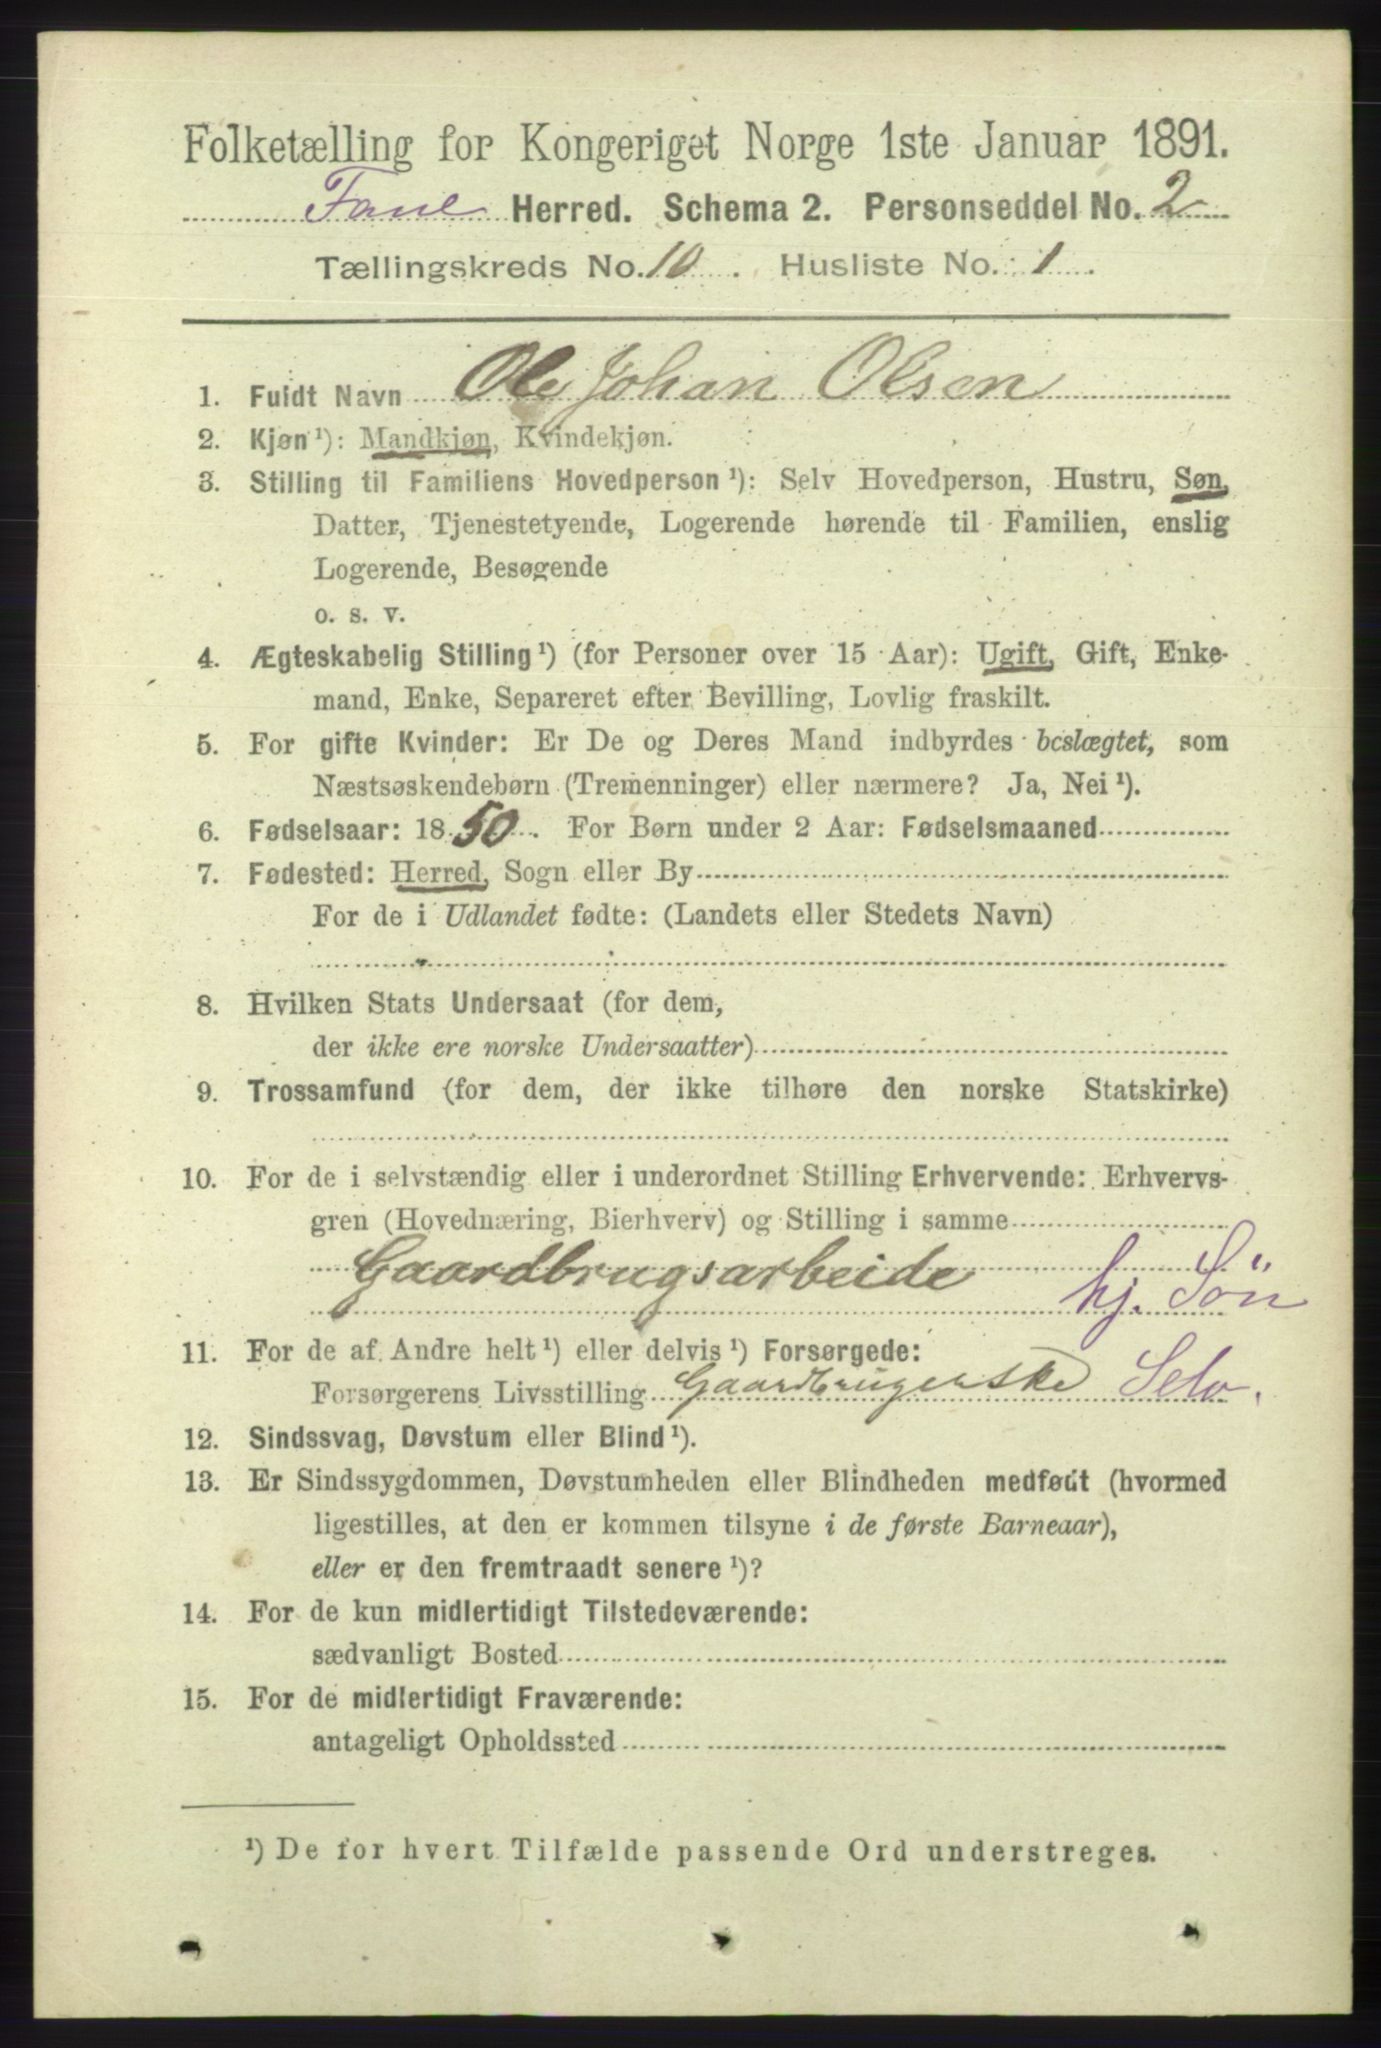 Folketælling for Kongeriget Norge 1ste Januar 1891.
Fane Herred. Schema 2. Personseddel No. 2
Tællingskreds No. 10. Husliste No. 1.
1. Fuldt Navn Ole Johan Olsen
2. Kjøn ¹): Mandkjøn, Kvindekjøn.
3. Stilling til Familiens Hovedperson ¹): Selv Hovedperson, Hustru, Søn,
Datter, Tjenestetyende, Logerende hørende til Familien, enslig
Logerende, Besøgende
o. s. v.
4. Ægteskabelig Stilling ¹) (for Personer over 15 Aar): Ugift, Gift, Enke-
mand, Enke, Separeret efter Bevilling, Lovlig fraskilt.
5. For gifte Kvinder: Er De og Deres Mand indbyrdes beslægtet, som
Næstsøskendebørn (Tremenninger) eller nærmere? Ja, Nei ¹).
6. Fødselsaar: 1850. For Børn under 2 Aar: Fødselsmaaned
7. Fødested: Herred, Sogn eller By
For de i Udlandet fødte: (Landets eller Stedets Navn)
8. Hvilken Stats Undersaat (for dem,
der ikke ere norske Undersaatter)
9. Trossamfund (for dem, der ikke tilhøre den norske Statskirke)
10. For de i selvstændig eller i underordnet Stilling Erhvervende: Erhvervs-
gren (Hovednæring, Bierhverv) og Stilling i samme
Gaardbrugsarbeide hj. Sön
11. For de af Andre helt ¹) eller delvis ¹) Forsørgede:
Forsørgerens Livsstilling Gaardbrugerske Selv.
12. Sindssvag, Døvstum eller Blind ¹).
13. Er Sindssygdommen, Døvstumheden eller Blindheden medfødt (hvormed
ligestilles, at den er kommen tilsyne i de første Barneaar),
eller er den fremtraadt senere ¹)?
14. For de kun midlertidigt Tilstedeværende:
sædvanligt Bosted
15. For de midlertidigt Fraværende:
antageligt Opholdssted
¹) De for hvert Tilfælde passende Ord understreges.